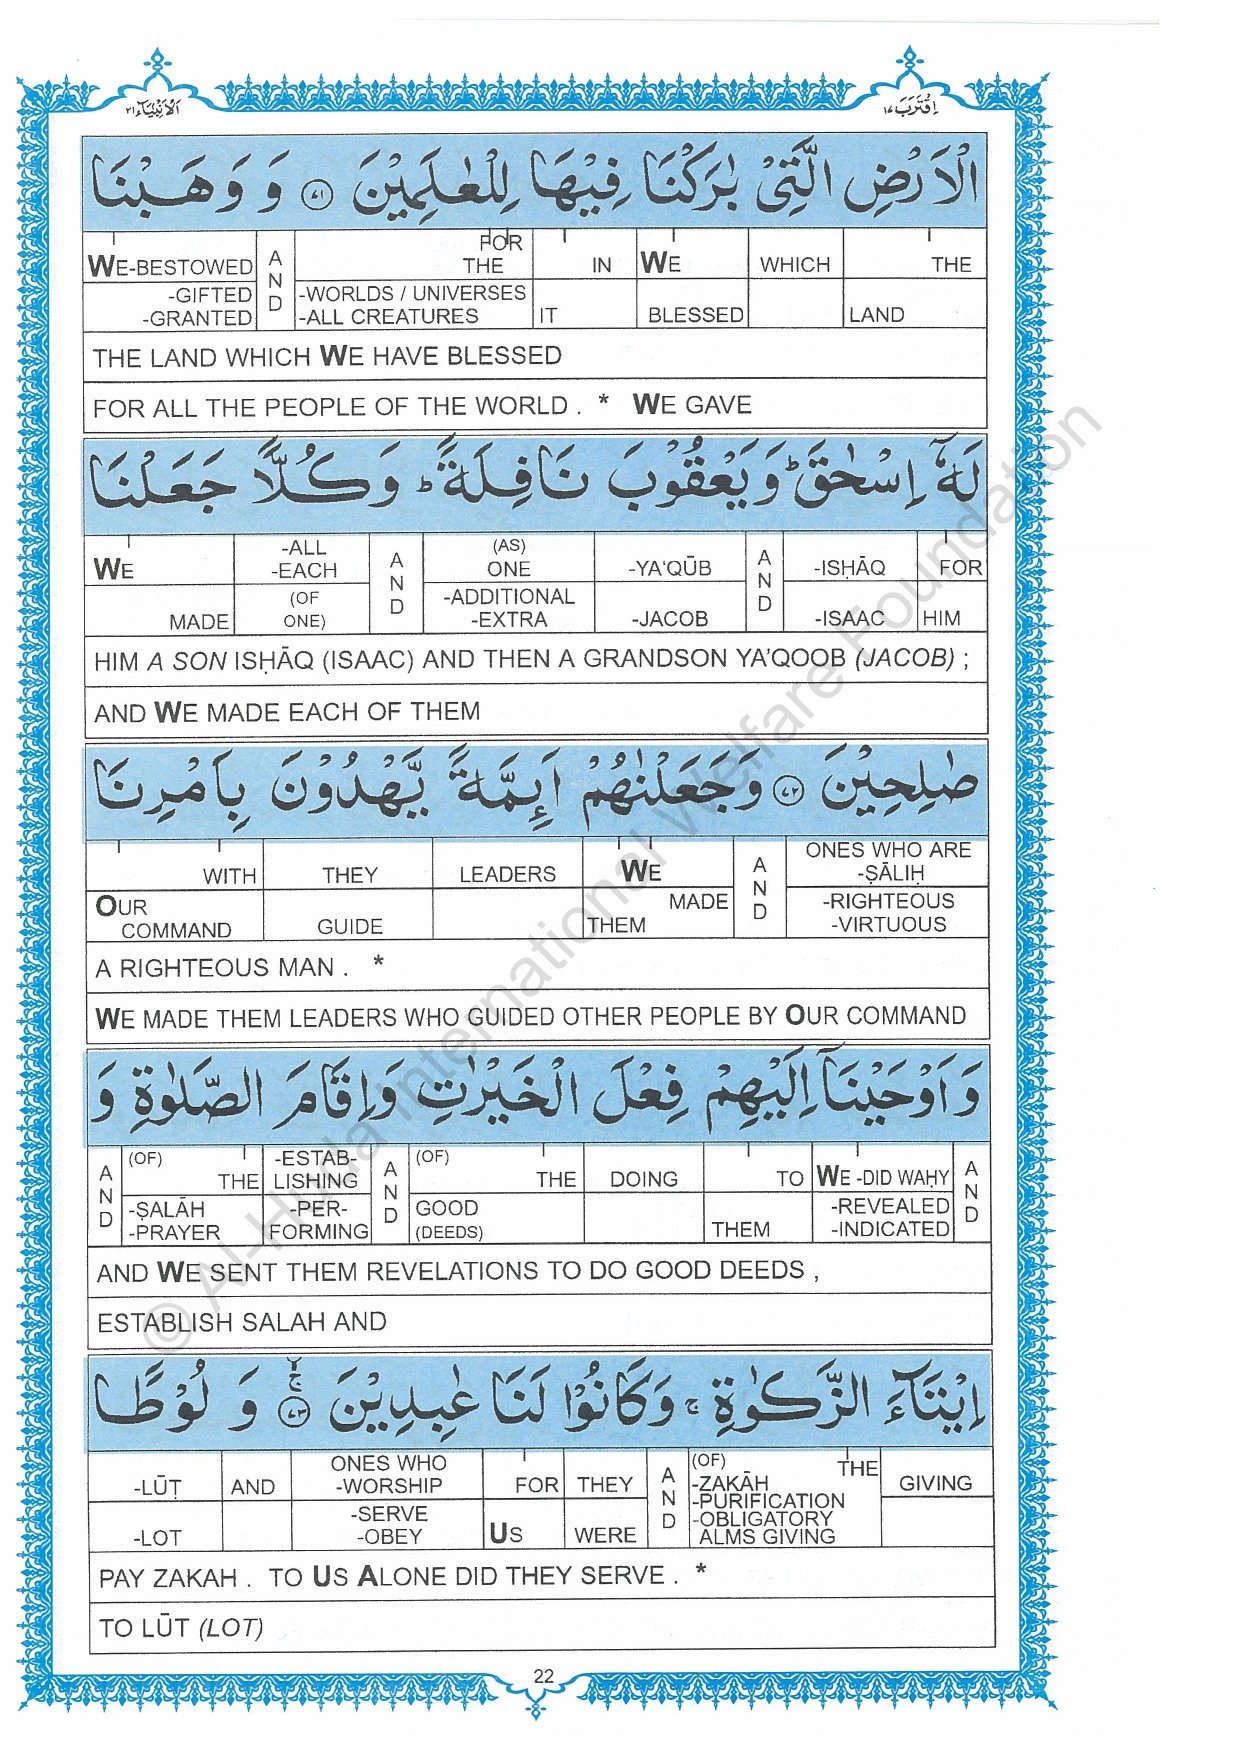 اَلْاَنْۢبِيَآء ٢١
اِقْتَرَبَ ١٧
الْاَرْضِ الَّتِيْ بٰرَكْنَا فِيْهَا لِلْعٰلَمِيْنَ ﴿٧١﴾ وَ وَهَبْنَا
WE-BESTOWED -GIFTED -GRANTED | AND | FOR THE -WORLDS / UNIVERSES -ALL CREATURES | IN IT | WE BLESSED | WHICH | THE LAND
THE LAND WHICH WE HAVE BLESSED
FOR ALL THE PEOPLE OF THE WORLD . * WE GAVE
لَهٗۤ اِسْحٰقَ ؕ وَ يَعْقُوْبَ نَافِلَةً ؕ وَ كُلًّا جَعَلْنَا
WE MADE | -ALL -EACH (OF ONE) | AND | (AS) ONE -ADDITIONAL -EXTRA | -YA'QŪB -JACOB | AND | -ISḤĀQ -ISAAC | FOR HIM
HIM A SON ISḤĀQ (ISAAC) AND THEN A GRANDSON YA'QOOB (JACOB) ;
AND WE MADE EACH OF THEM
صٰلِحِيْنَ ﴿٧٢﴾ وَ جَعَلْنٰهُمْ اَئِمَّةً يَّهْدُوْنَ بِاَمْرِنَا
WITH OUR COMMAND | THEY GUIDE | LEADERS | WE MADE THEM | AND | ONES WHO ARE -ṢĀLIḤ -RIGHTEOUS -VIRTUOUS
A RIGHTEOUS MAN . *
WE MADE THEM LEADERS WHO GUIDED OTHER PEOPLE BY OUR COMMAND
وَ اَوْحَيْنَاۤ اِلَيْهِمْ فِعْلَ الْخَيْرٰتِ وَ اِقَامَ الصَّلٰوةِ وَ
AND | (OF) THE -ṢALĀH -PRAYER | -ESTAB- LISHING -PER- FORMING | AND | (OF) THE GOOD (DEEDS) | DOING | TO THEM | WE -DID WAḤY -REVEALED -INDICATED | AND
AND WE SENT THEM REVELATIONS TO DO GOOD DEEDS ,
ESTABLISH SALAH AND
اِيْتَآءَ الزَّكٰوةِ ۚ وَ كَانُوْا لَنَا عٰبِدِيْنَ ﴿٧٣﴾ ۚ وَ لُوْطًا
-LŪṬ -LOT | AND | ONES WHO -WORSHIP -SERVE -OBEY | FOR US | THEY WERE | AND | (OF) THE -ZAKĀH -PURIFICATION -OBLIGATORY ALMS GIVING | GIVING
PAY ZAKAH . TO US ALONE DID THEY SERVE . *
TO LŪT (LOT)
22
© Al-Huda International Welfare Foundation